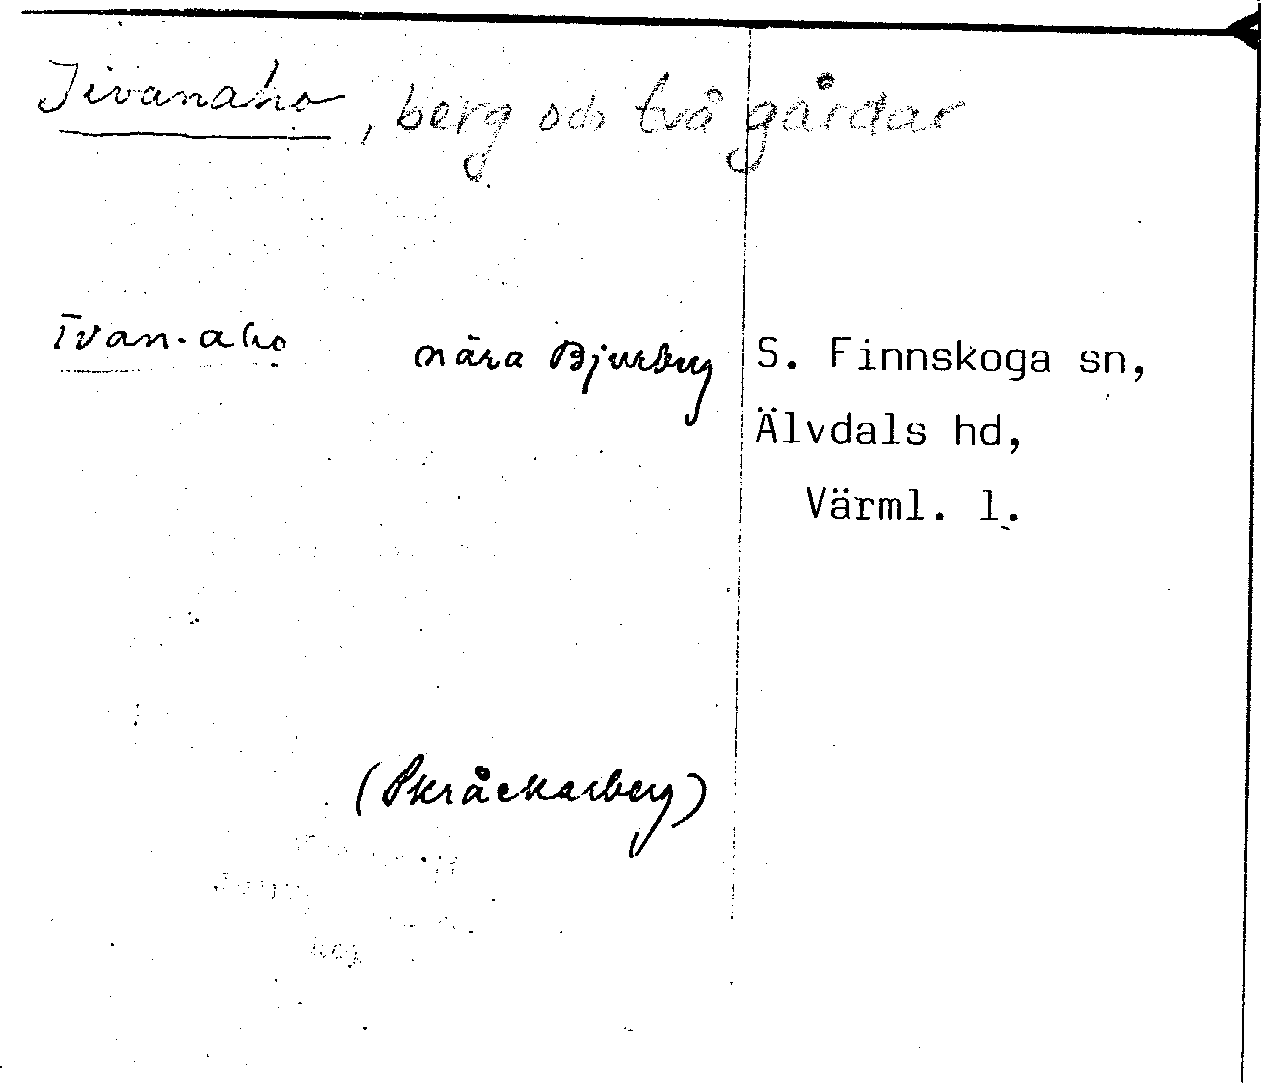 Iivanaho, berg och två gårdar
Īvan-aho nära Bjurberg S. Finnskoga sn,
Älvdals hd,
Värml. l.
(Skråckarberg)